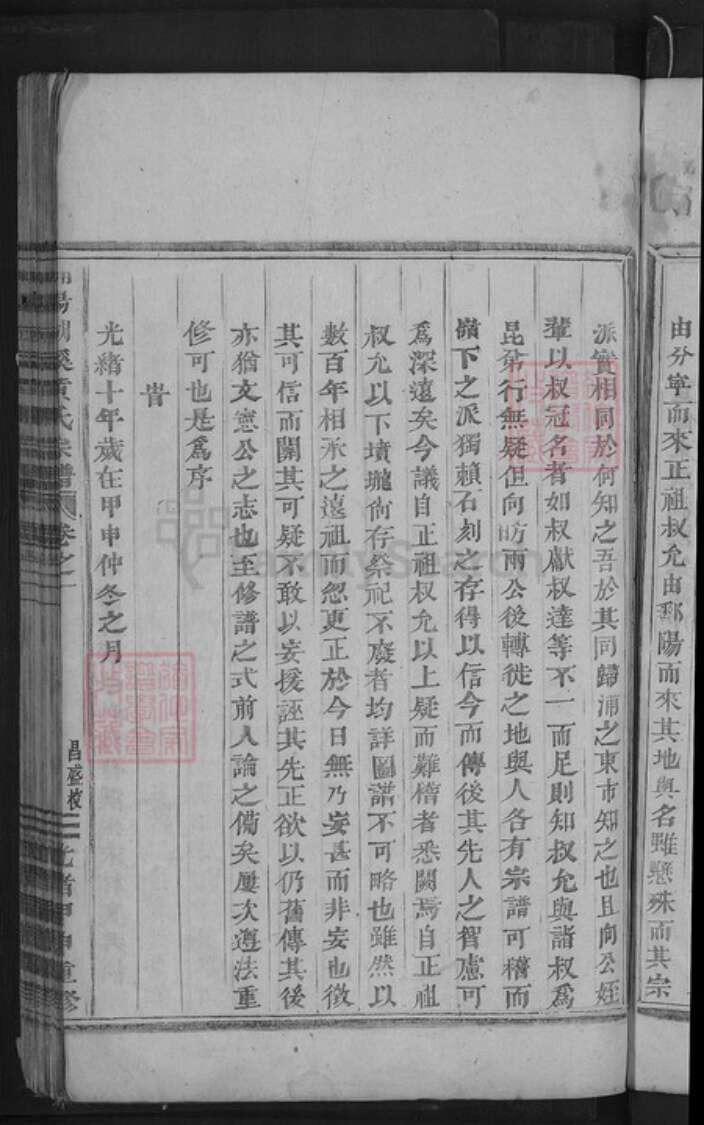 由分寧而來正祖叔允由鄱陽而來其地與名雖懸殊而其宗
派實相同於何知之吾於其同歸浦之東市知之也且向公姪
輩以叔冠名者如叔獻叔達等不一而足則知叔允與諸叔爲
昆弟行無疑但向昉兩公後轉徙之地與人各有宗譜可稽而
嶺下之派獨賴石刻之存得以信今而傳後其先人之智慮可
爲深遠矣今議自正祖叔允以上疑而難稽者悉闕焉自正祖
叔允以下墳壠尙存祭祀不廢者均詳圖譜不可略也雖然以
數百年相承之遠祖而忽更正於今日無乃妄甚而非妄也徵
其可信而闕其可疑不敢以妄援誣其先正欲以仍舊傳其後
亦猶文憲公之志也至修譜之式前人論之備矣屢次遵法重
修可也是爲序
旹
光緒十年歲在甲申仲冬之月
溪黃氏宗譜 卷之一
昌盛校
光緒甲申重修
FamilySearch